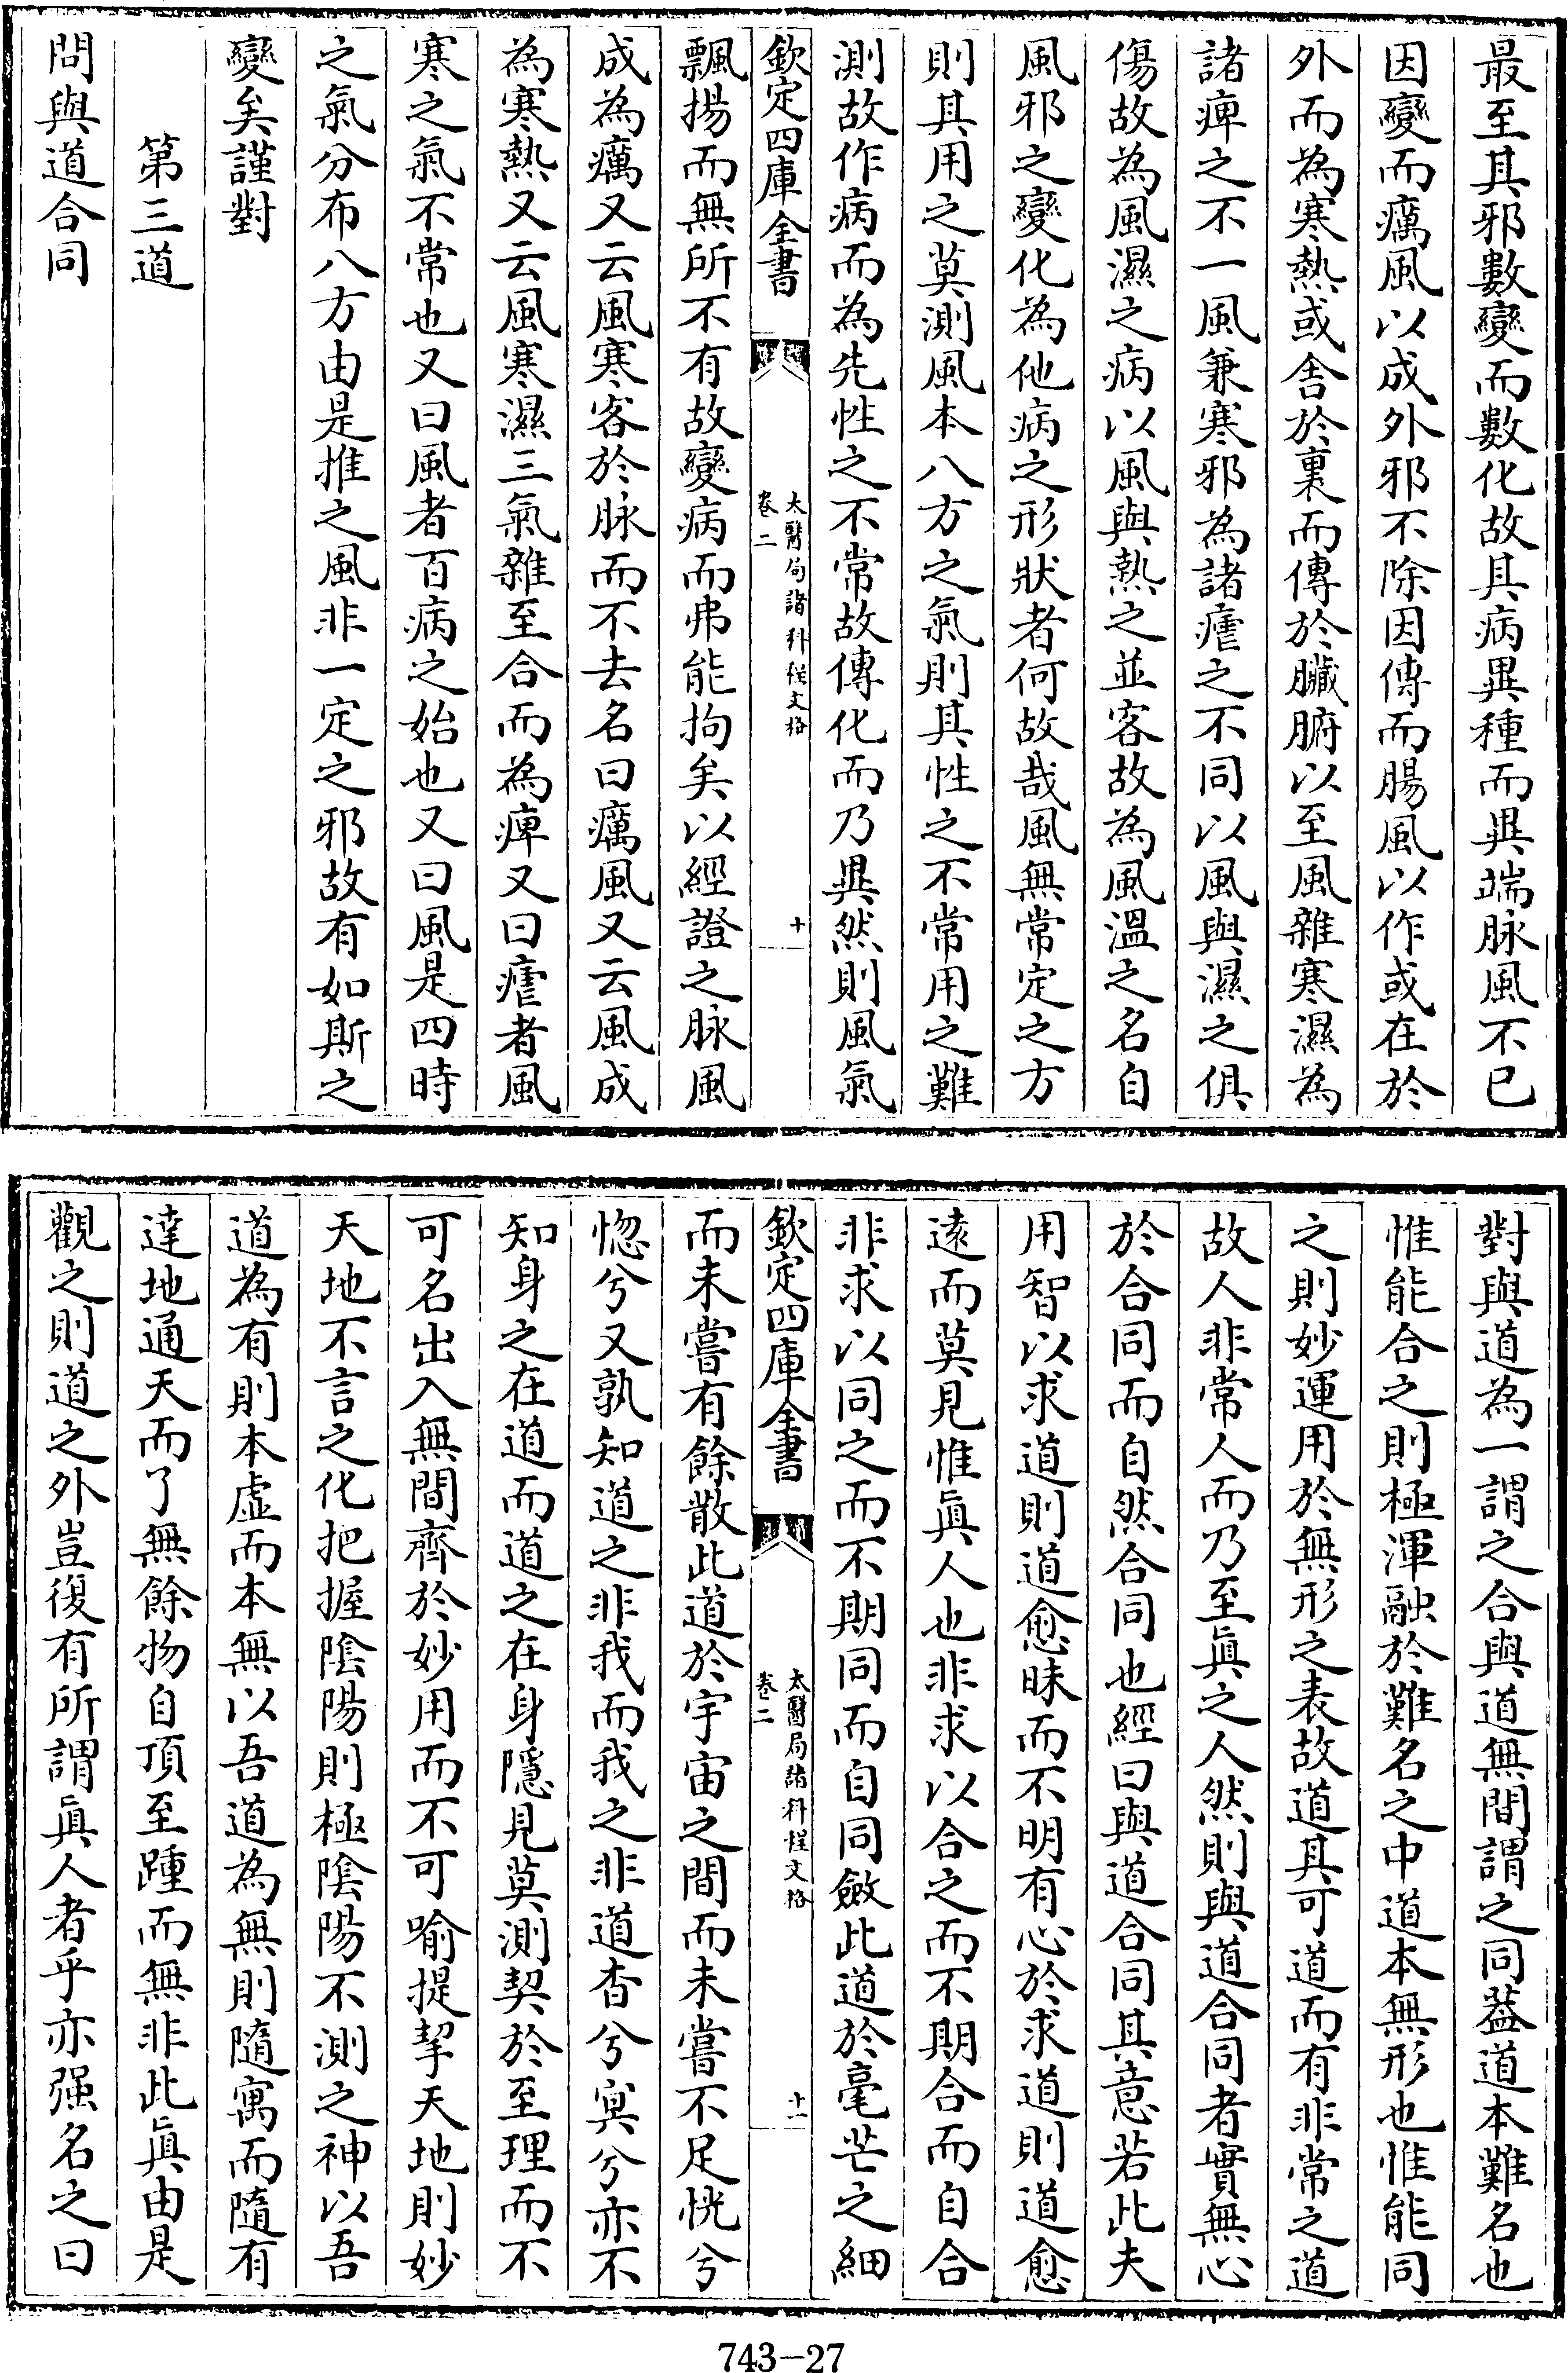 最至其邪數變而數化故其病異種而異端脉風不已
因變而癘風以成外邪不除因傳而腸風以作或在於
外而為寒熱或舍於裏而傳於臟腑以至風雜寒濕為
諸痺之不一風兼寒邪為諸瘧之不同以風與濕之俱
傷故為風濕之病以風與熱之並客故為風溫之名自
風邪之變化為他病之形狀者何故哉風無常定之方
則其用之莫測風本八方之氣則其性之不常用之難
測故作病而為先性之不常故傳化而乃異然則風氣
欽定四庫全書
太醫局諸科程文格
卷二
十
飄揚而無所不有故變病而弗能拘矣以經證之脉風
成為癘又云風寒客於脉而不去名曰癘風又云風成
為寒熱又云風寒濕三氣雜至合而為痺又曰瘧者風
寒之氣不常也又曰風者百病之始也又曰風是四時
之氣分布八方由是推之風非一定之邪故有如斯之
變矣謹對
第三道
問與道合同
對與道為一謂之合與道無間謂之同葢道本難名也
惟能合之則極渾融於難名之中道本無形也惟能同
之則妙運用於無形之表故道其可道而有非常之道
故人非常人而乃至眞之人然則與道合同者實無心
於合同而自然合同也經曰與道合同其意若此夫
用智以求道則道愈昧而不明有心於求道則道愈
遠而莫見惟眞人也非求以合之而不期合而自合
非求以同之而不期同而自同斂此道於毫芒之細
欽定四庫全書
太醫局諸科程文格
卷二
十一
而未嘗有餘散此道於宇宙之間而未嘗不足恍兮
惚兮又孰知道之非我而我之非道杳兮冥兮亦不
知身之在道而道之在身隱見莫測契於至理而不
可名出入無間齊於妙用而不可喻提挈天地則妙
天地不言之化把握陰陽則極陰陽不測之神以吾
道為有則本虛而本無以吾道為無則隨寓而隨有
達地通天而了無餘物自頂至踵而無非此眞由是
觀之則道之外豈復有所謂眞人者乎亦强名之曰
743-27